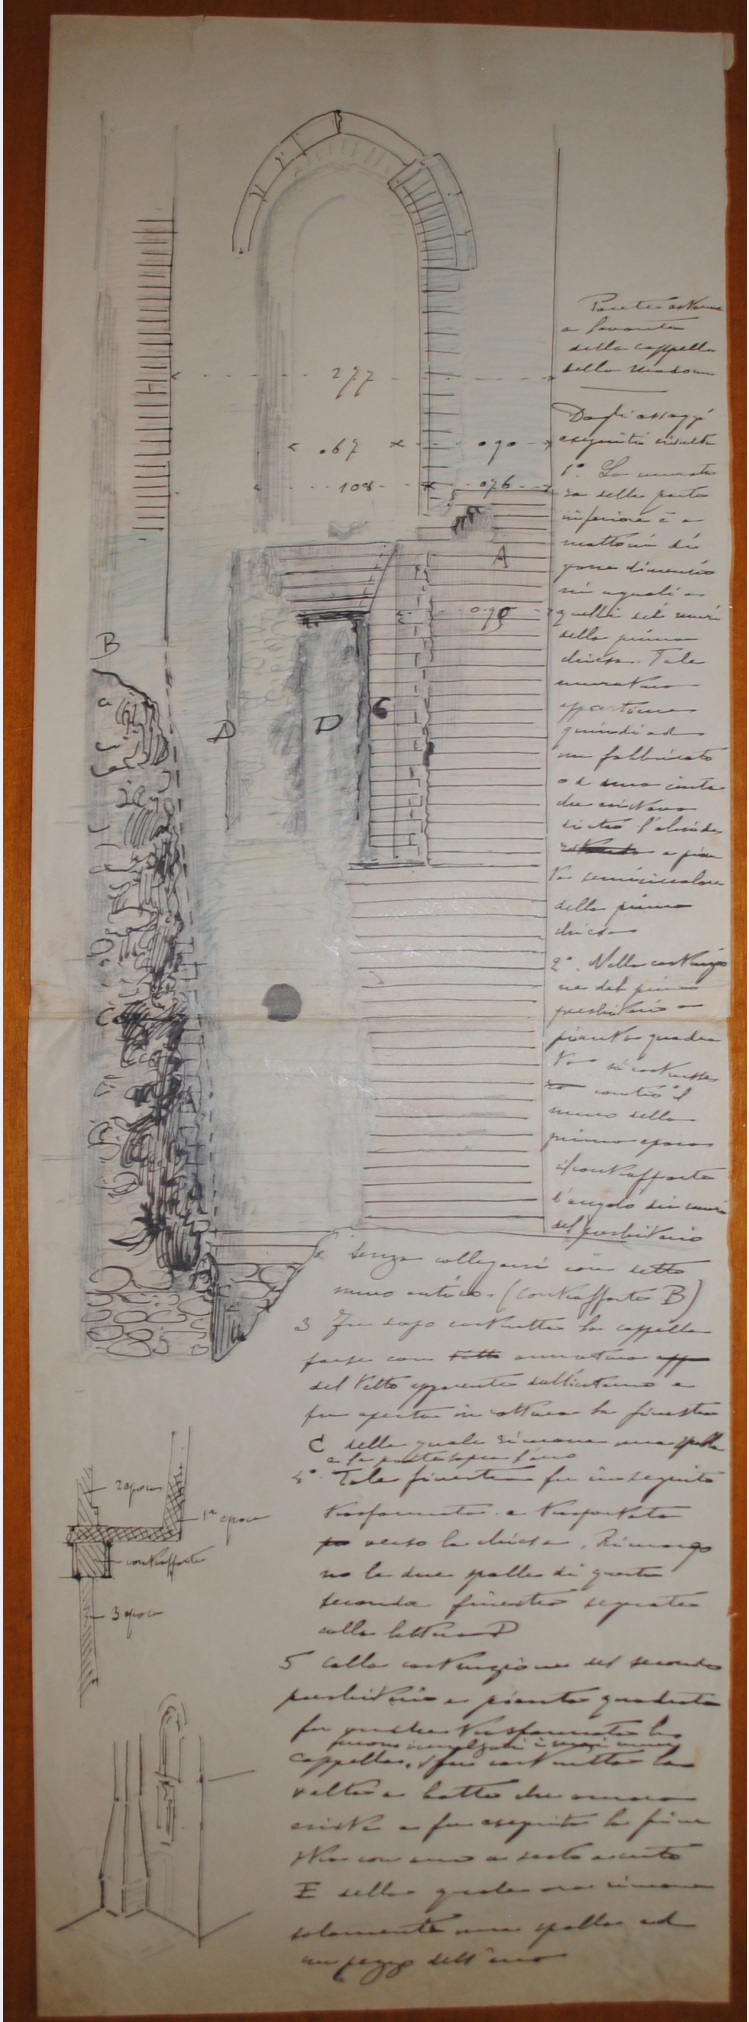 277
.67
090
108
076
A
090
B
D
D
C
Parete esterna
a levante
della cappella
della Madon
Dagli assaggi
eseguiti risulta
1º. La muratu
ra della parte
inferiore è a
mattoni di
dimensio
ni uguali a
quelli dei muri
della prima
chiesa. Tale
muratura
appartiene
quindi ad
un fabbricato
o a una cinta
che esisteva
dietro l'abside
a pian
ta semicircolare
della prima
chiesa
2º. Nella costruzio
ne del primo
presbiterio a
pianta quadra
ta si costrusse
ro contro il
muro della
prima epoca
il contrafforte
l'angolo dei muri
del presbiterio
senza collegarsi con detto
muro antico. (Contrafforte B)
3 Fu dopo costrutta la cappella
forse con armatura
del tetto apparente dall'interno e
fu aperta in rottura la finestra
C della quale rimane una spalla
e la parte sopra l'arco
4º. Tale finestra fu in seguito
trasformata e trasportata
verso la chiesa. Rimango
no le due spalle di questa
seconda finestra segnate
colla lettera D
5 Colla costruzione del secondo
presbiterio a pianta quadrata
fu trasformata la
furono rialzati i muri
cappella, fu costrutta la
volta a botte che ancora
esiste e fu eseguita la fine
stra con arco a sesto acuto
E della quale ora rimane
solamente una spalla ed
un pezzo dell'arco
2 epoca
1ª epoca
contrafforte
3 epoca